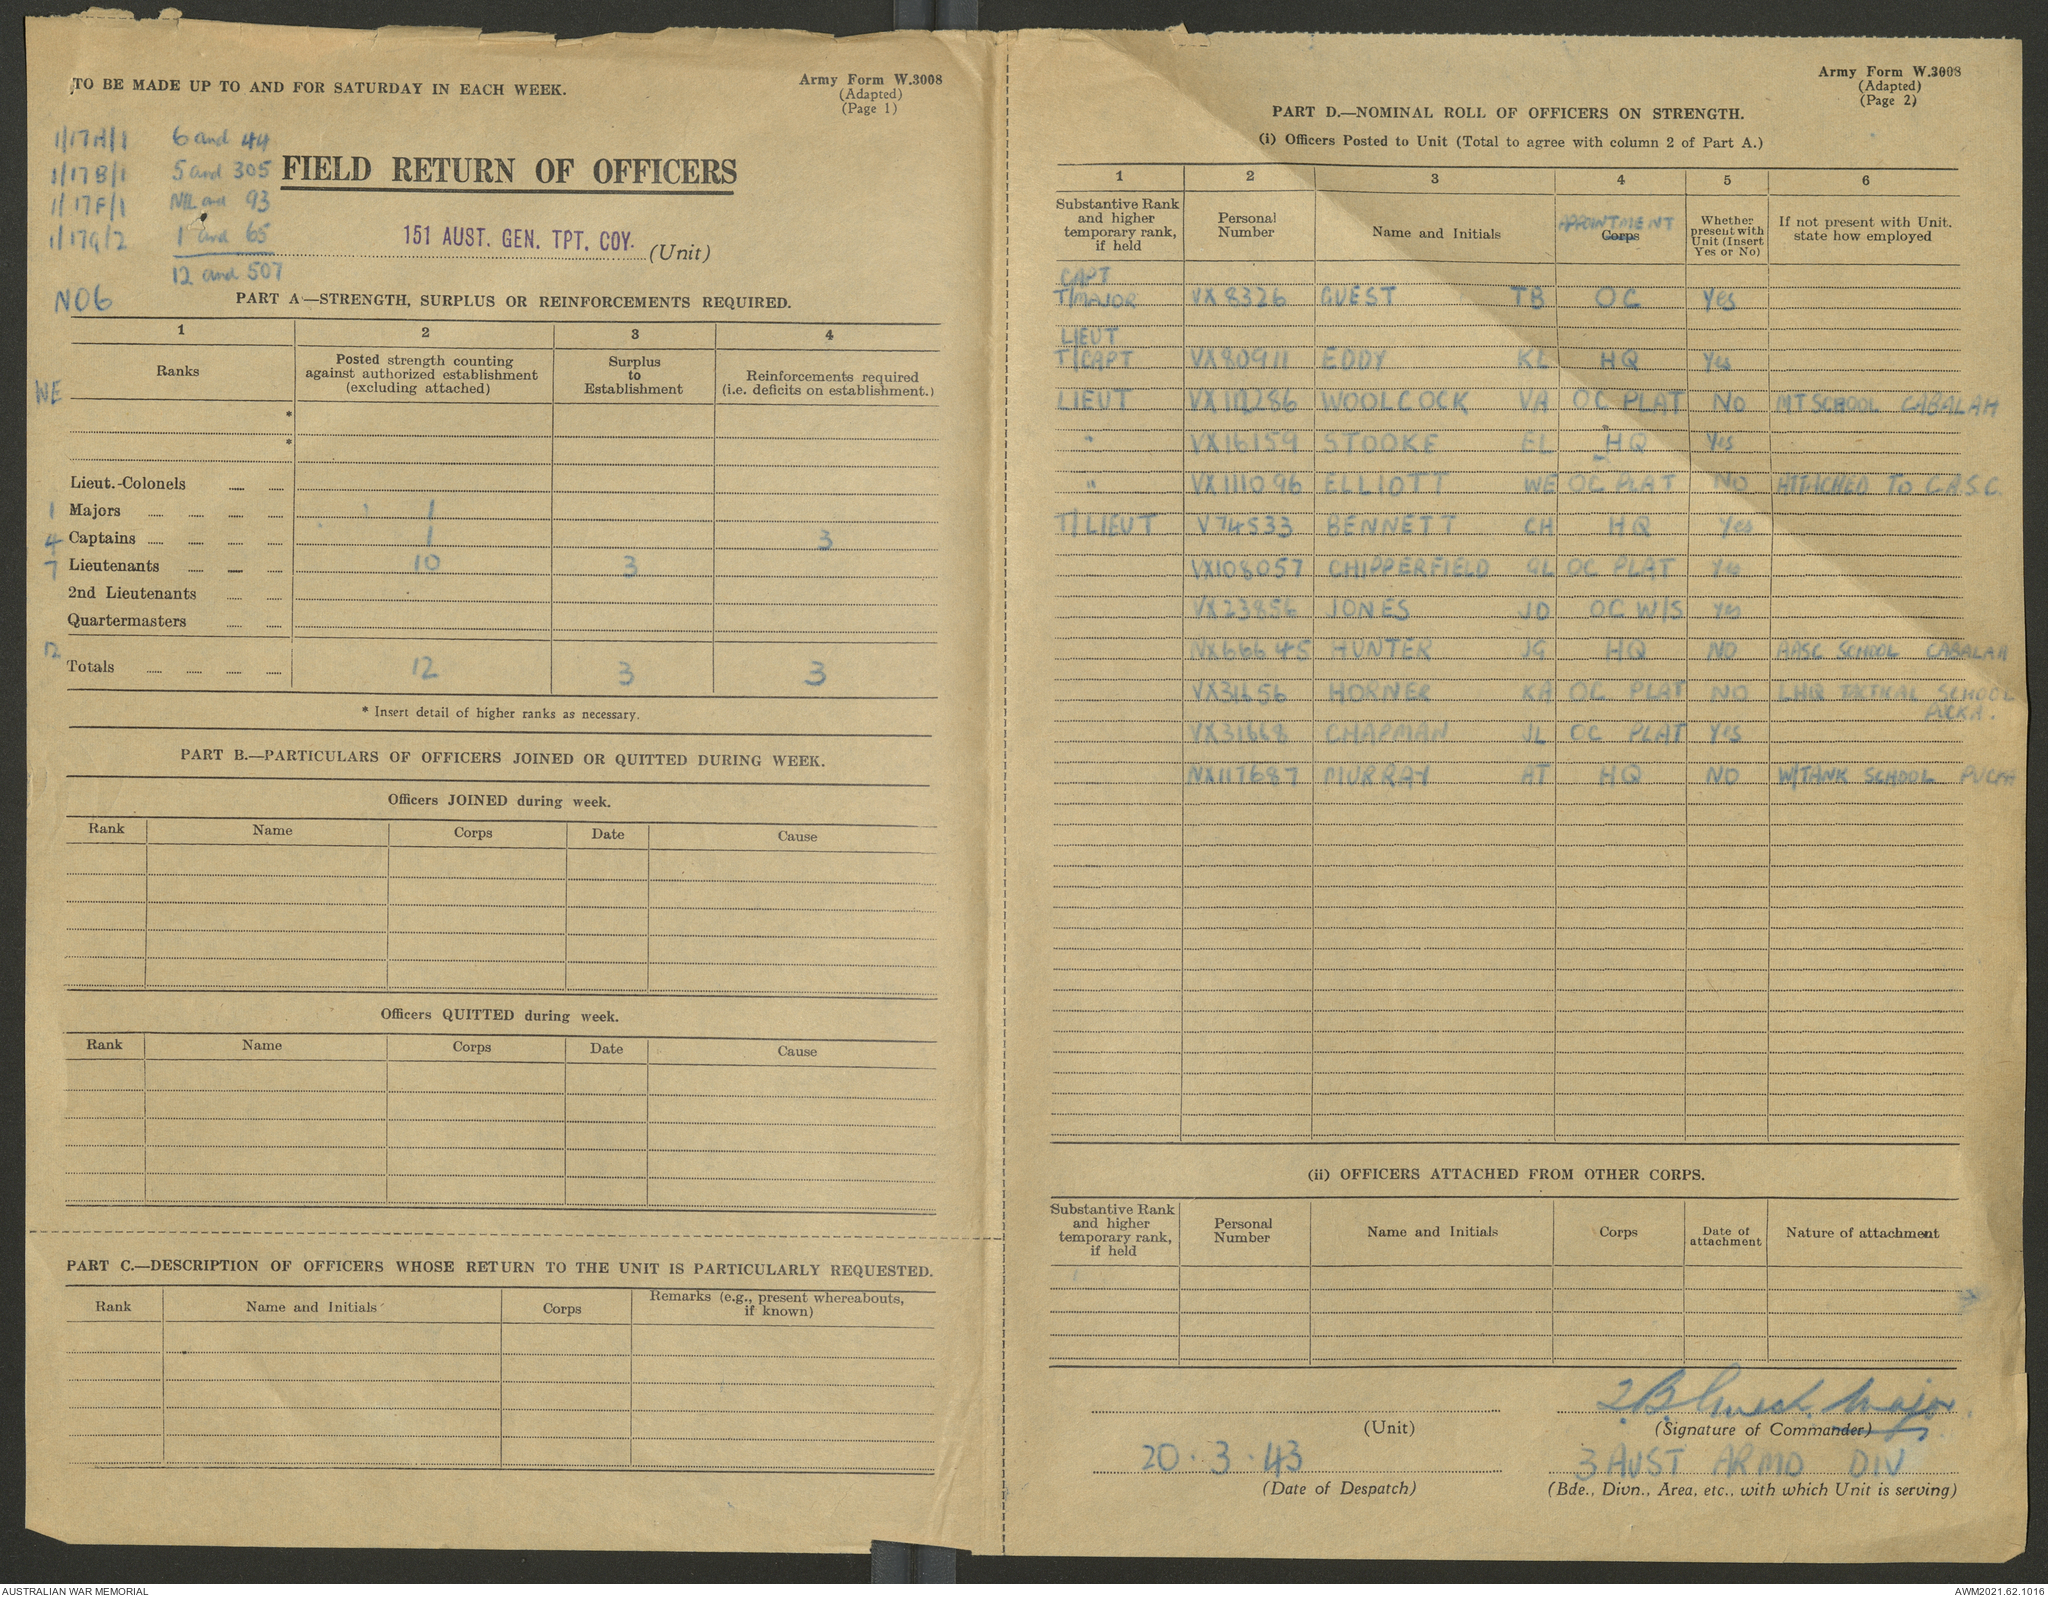 TO BE MADE UP TO AND FOR SATURDAY IN EACH WEEK.
Army Form W.3008
(Adapted)
(Page 1)
1/17A/1 6 and 44
1/17B/1 5 and 305
1/17F/1 NIL and 93
1/17G/2 1 and 65
12 and 507
NO6
FIELD RETURN OF OFFICERS
151 AUST. GEN. TPT. COY. (Unit)
PART A—STRENGTH, SURPLUS OR REINFORCEMENTS REQUIRED.
1 2 3 4
Ranks
Posted strength counting
against authorized establishment
(excluding attached)
Surplus
to
Establishment
Reinforcements required
(i.e. deficits on establishment.)
WE
*
*
Lieut.-Colonels
1 Majors 1
4 Captains 1 3
7 Lieutenants 10 3
2nd Lieutenants
Quartermasters
12 Totals 12 3 3
* Insert detail of higher ranks as necessary.
PART B.—PARTICULARS OF OFFICERS JOINED OR QUITTED DURING WEEK.
Officers JOINED during week.
Rank Name Corps Date Cause
Officers QUITTED during week.
Rank Name Corps Date Cause
PART C.—DESCRIPTION OF OFFICERS WHOSE RETURN TO THE UNIT IS PARTICULARLY REQUESTED.
Rank Name and Initials Corps Remarks (e.g., present whereabouts,
if known)
Army Form W.3008
(Adapted)
(Page 2)
PART D.—NOMINAL ROLL OF OFFICERS ON STRENGTH.
(i) Officers Posted to Unit (Total to agree with column 2 of Part A.)
1 2 3 4 5 6
Substantive Rank
and higher
temporary rank,
if held
Personal
Number
Name and Initials
APPOINTMENT
Corps
Whether
present with
Unit (Insert
Yes or No)
If not present with Unit.
state how employed
CAPT
T/MAJOR VX8326 GUEST TB OC Yes
LIEUT
T/CAPT VX80911 EDDY KL HQ Yes
LIEUT WOOLCOCK VA OC PLAT NO MT SCHOOL CABALAH
" VX16159 STOOKE EL HQ Yes
" VX111096 ELLIOTT WE OC PLAT NO ATTACHED TO C.A.S.C.
T/LIEUT V74533 BENNETT CH HQ Yes
VX108057 CHIPPERFIELD GL OC PLAT Yes
VX23856 JONES JD OC W/S Yes
NX66645 HUNTER JG HQ NO AASC SCHOOL CABALAH
VX31656 HORNER KA OC PLAT NO LHQ TACTICAL SCHOOL
PUCKA.
VX31668 CHAPMAN JL OC PLAT Yes
NX117687 MURRAY AT HQ NO W/TANK SCHOOL PUCKA
(ii) OFFICERS ATTACHED FROM OTHER CORPS.
Substantive Rank
and higher
temporary rank,
if held
Personal
Number
Name and Initials
Corps
Date of
attachment
Nature of attachment
T.B. Guest. Major.
(Unit) (Signature of Commander)
20.3.43 3 AUST ARMD DIV
(Date of Despatch) (Bde., Divn., Area, etc., with which Unit is serving)
AUSTRALIAN WAR MEMORIAL
AWM2021.62.1016